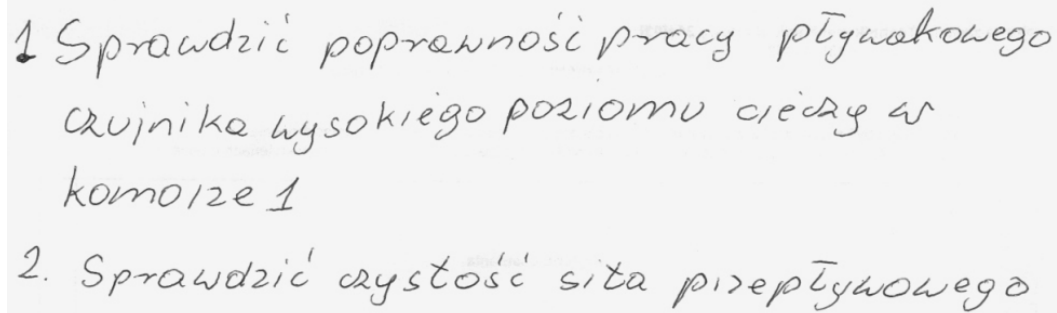 1 Sprawdzić poprawność pracy pływakowego
czujnika wysokiego poziomu cieczy w
komorze 1
2. Sprawdzić czystość sita przepływowego